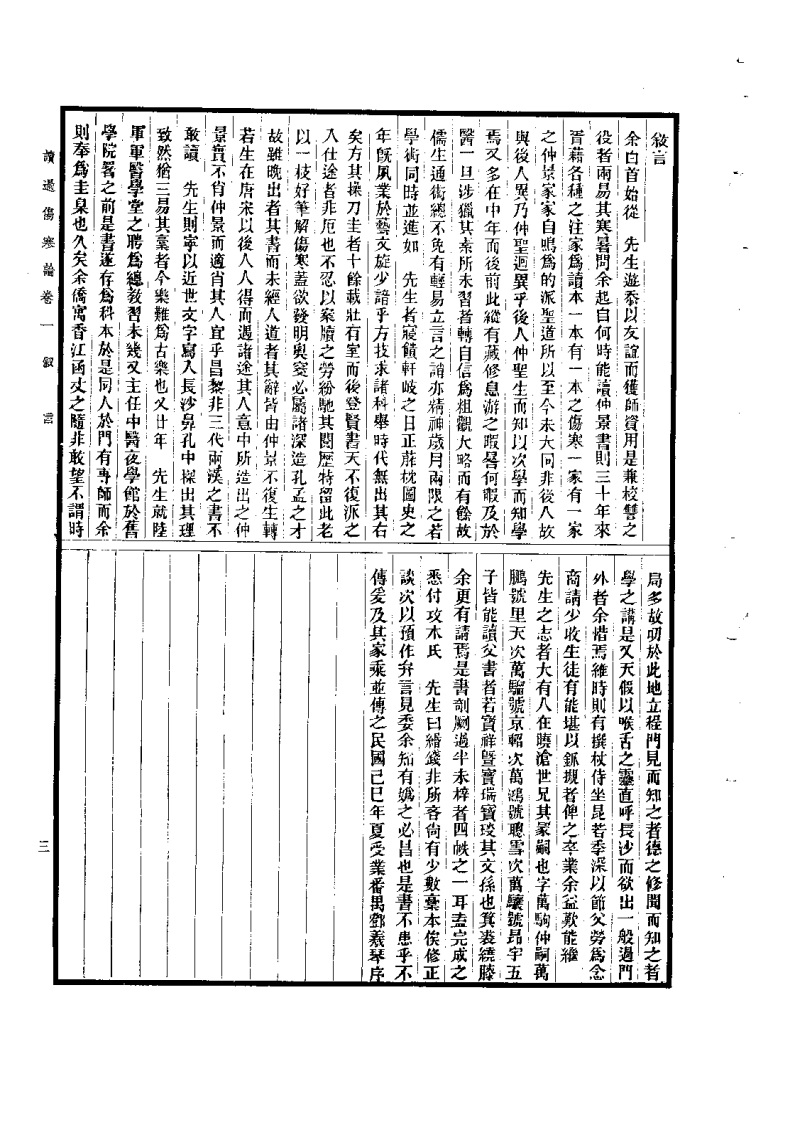 敍言
余白首始從　先生遊忝以友誼而獲師資用是兼校讐之
役者兩易其寒暑問余起自何時能讀仲景書則三十年來
胥藉各種之注家爲讀本一本有一本之傷寒一家有一家
之仲景家家自鳴爲的派聖道所以至今未大同非後人故
與後人異乃仲聖迥異乎後人仲聖生而知以次學而知學
焉又多在中年而後前此縱有藏修息游之暇晷何暇及於
醫一旦涉獵其素所未習者轉自信爲粗觀大略而有餘故
儒生通術總不免有輕易立言之誚亦精神歲月兩限之若
學術同時並進如　先生者寢饋軒岐之日正葄枕圖史之
年旣夙業於藝文旋少諳乎方技求諸科舉時代無出其右
矣方其操刀圭者十餘載壯有室而後登賢書天不復派之
入仕途者非厄也不忍以案牘之勞紛馳其閱歷特留此老
以一枝好筆解傷寒蓋欲發明奧窔必屬諸深造孔孟之才
故雖晚出者其書而未經人道者其辭皆由仲景不復生轉
若生在唐宋以後人人得而遇諸途其人意中所造出之仲
景實不肖仲景而適肖其人宜乎昌黎非三代兩漢之書不
敢讀　先生則寧以近世文字寫入長沙鼻孔中探出其理
致然猶三易其稾者今樂難爲古樂也又廿年　先生就陸
軍軍醫學堂之聘爲總敎習未幾又主任中醫夜學館於舊
學院署之前是書遂存爲科本於是同人於門有專師而余
則奉爲圭臬也久矣余僑寓香江函丈之隨非敢望不謂時
局多故叨於此地立程門見而知之者德之修聞而知之者
學之講是又天假以喉舌之靈直呼長沙而欲出一般過門
外者余惜焉維時則有撰杖侍坐昆若季深以節父勞爲念
商請少收生徒有能堪以鈲槻者俾之卒業余益歎能繼
先生之志者大有人在曉滄世兄其冢嗣也字萬駒仲嗣萬
鵬號里天次萬驑號京軺次萬鴻號聰雪次萬驤號昂宇五
子皆能讀父書者若寶祥曁寶瑞寶琰其文孫也箕裘繞膝
余更有請焉是書剞劂過半未梓者四帙之一耳盍完成之
悉付攻木氏　先生曰緡錢非所吝尙有少數稾本俟修正
談次以預作弁言見委余知有嬀之必昌也是書不患乎不
傳爰及其家乘並傳之民國己巳年夏受業番禺鄧羲琴序
讀過傷寒論卷一　敍言
三